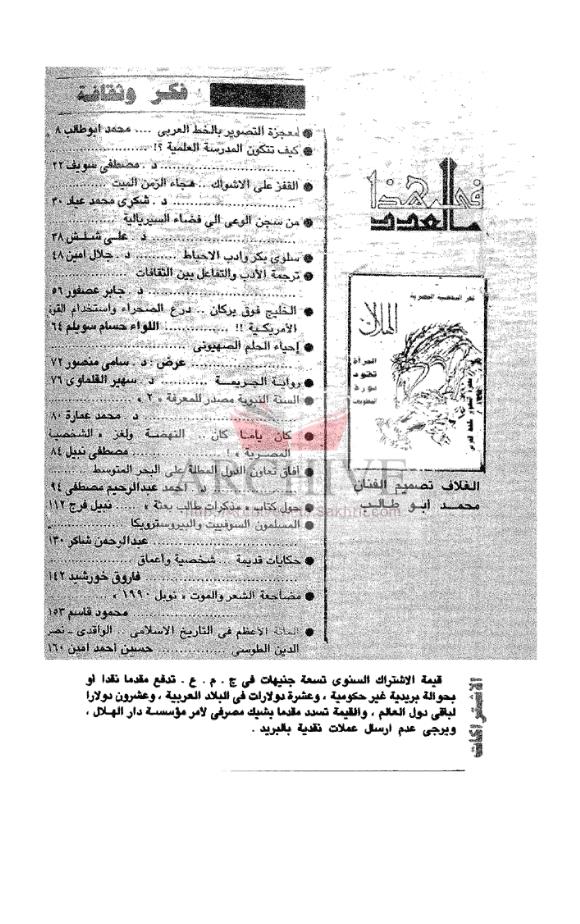 فى هذا
العدد
فكر وثقافة
● معجزة التصوير بالخط العربى .... محمد ابوطالب ٨
● كيف تتكون المدرسة العلمية ؟! ......................
................ د . مصطفى سويف ٢٢
● القفز على الاشواك .. هجاء الزمن الميت
................ د . شكرى محمد عياد ٣٠
● من سجن الوعى الى فضاء السيريالية
................ د . على شلش ٣٨
● سلوى بكر وادب الاحباط .......... د . جلال امين ٤٨
● ترجمة الأدب والتفاعل بين الثقافات
................ د . جابر عصفور ٥٦
● الخليج فوق بركان .. درع الصحراء واستخدام القوة
الأمريكية !! ............... اللواء حسام سويلم ٦٤
● إحياء الحلم الصهيونى ......................
................ عرض : د . سامى منصور ٧٢
● رواية الجريمة .......... د . سهير القلماوى ٧٦
● السنة النبوية مصدر للمعرفة « ٢ » ..................
................ د . محمد عمارة ٨٠
● كان ياما كان .. النهضة ولغز « الشخصية
المصرية » ! .............. مصطفى نبيل ٨٤
● آفاق تعاون الدول المطلة على البحر المتوسط
........ د . احمد عبدالرحيم مصطفى ٩٤
● حول كتاب « مذكرات طالب بعثة » ..... نبيل فرج ١١٢
● المسلمون السوفييت والبيروسترويكا
................ عبدالرحمن شاكر ١٣٠
● حكايات قديمة ... شخصية وأعماق ..................
................ فاروق خورشيد ١٤٢
● مضاجعة الشعر والموت « نوبل ١٩٩٠ » ..
................ محمود قاسم ١٥٣
● المائة الأعظم فى التاريخ الاسلامى .. الواقدى ـ نصر
الدين الطوسى ............. حسين احمد امين ١٦٠
الهلال
المرأة
تقود
ثورة
المعلومات
الغلاف تصميم الفنان
محمد ابو طالب
ARCHIVE
الاشتراكات
قيمة الاشتراك السنوى تسعة جنيهات فى ج . م . ع . تدفع مقدما نقدا أو
بحوالة بريدية غير حكومية ، وعشرة دولارات فى البلاد العربية ، وعشرون دولارا
لباقى دول العالم ، والقيمة تسدد مقدما بشيك مصرفى لأمر مؤسسة دار الهلال ،
ويرجى عدم ارسال عملات نقدية بالبريد .